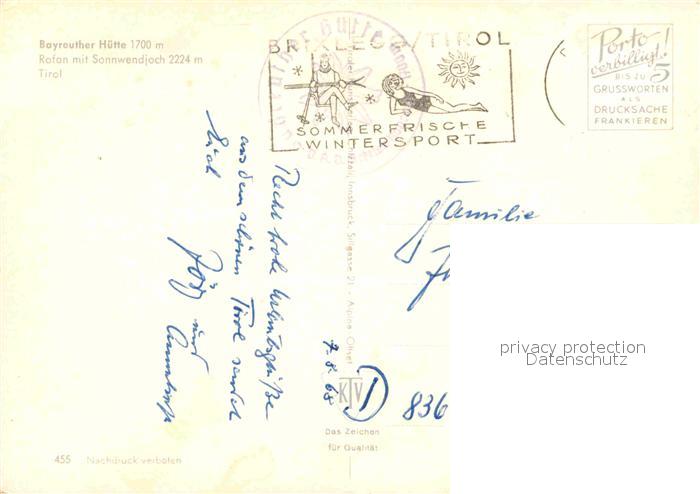 Bayreuther Hütte 1700 m
Rofan mit Sonnwendjoch 2224 m
Tirol
BRIXLEGG/TIROL
SOMMERFRISCHE
WINTERSPORT
Porto
verbilligt!
BIS ZU 5
GRUSSWORTEN
ALS
DRUCKSACHE
FRANKIEREN
Recht frohe Urlaubsgrüße
aus dem schönen Tirol sendet
Euch
Jörg und
7.8.68
Familie
D
836
Innsbruck, Sillgasse 21 - Alpina Offset
KTV
Das Zeichen
für Qualität
455 Nachdruck verboten
privacy protection
Datenschutz